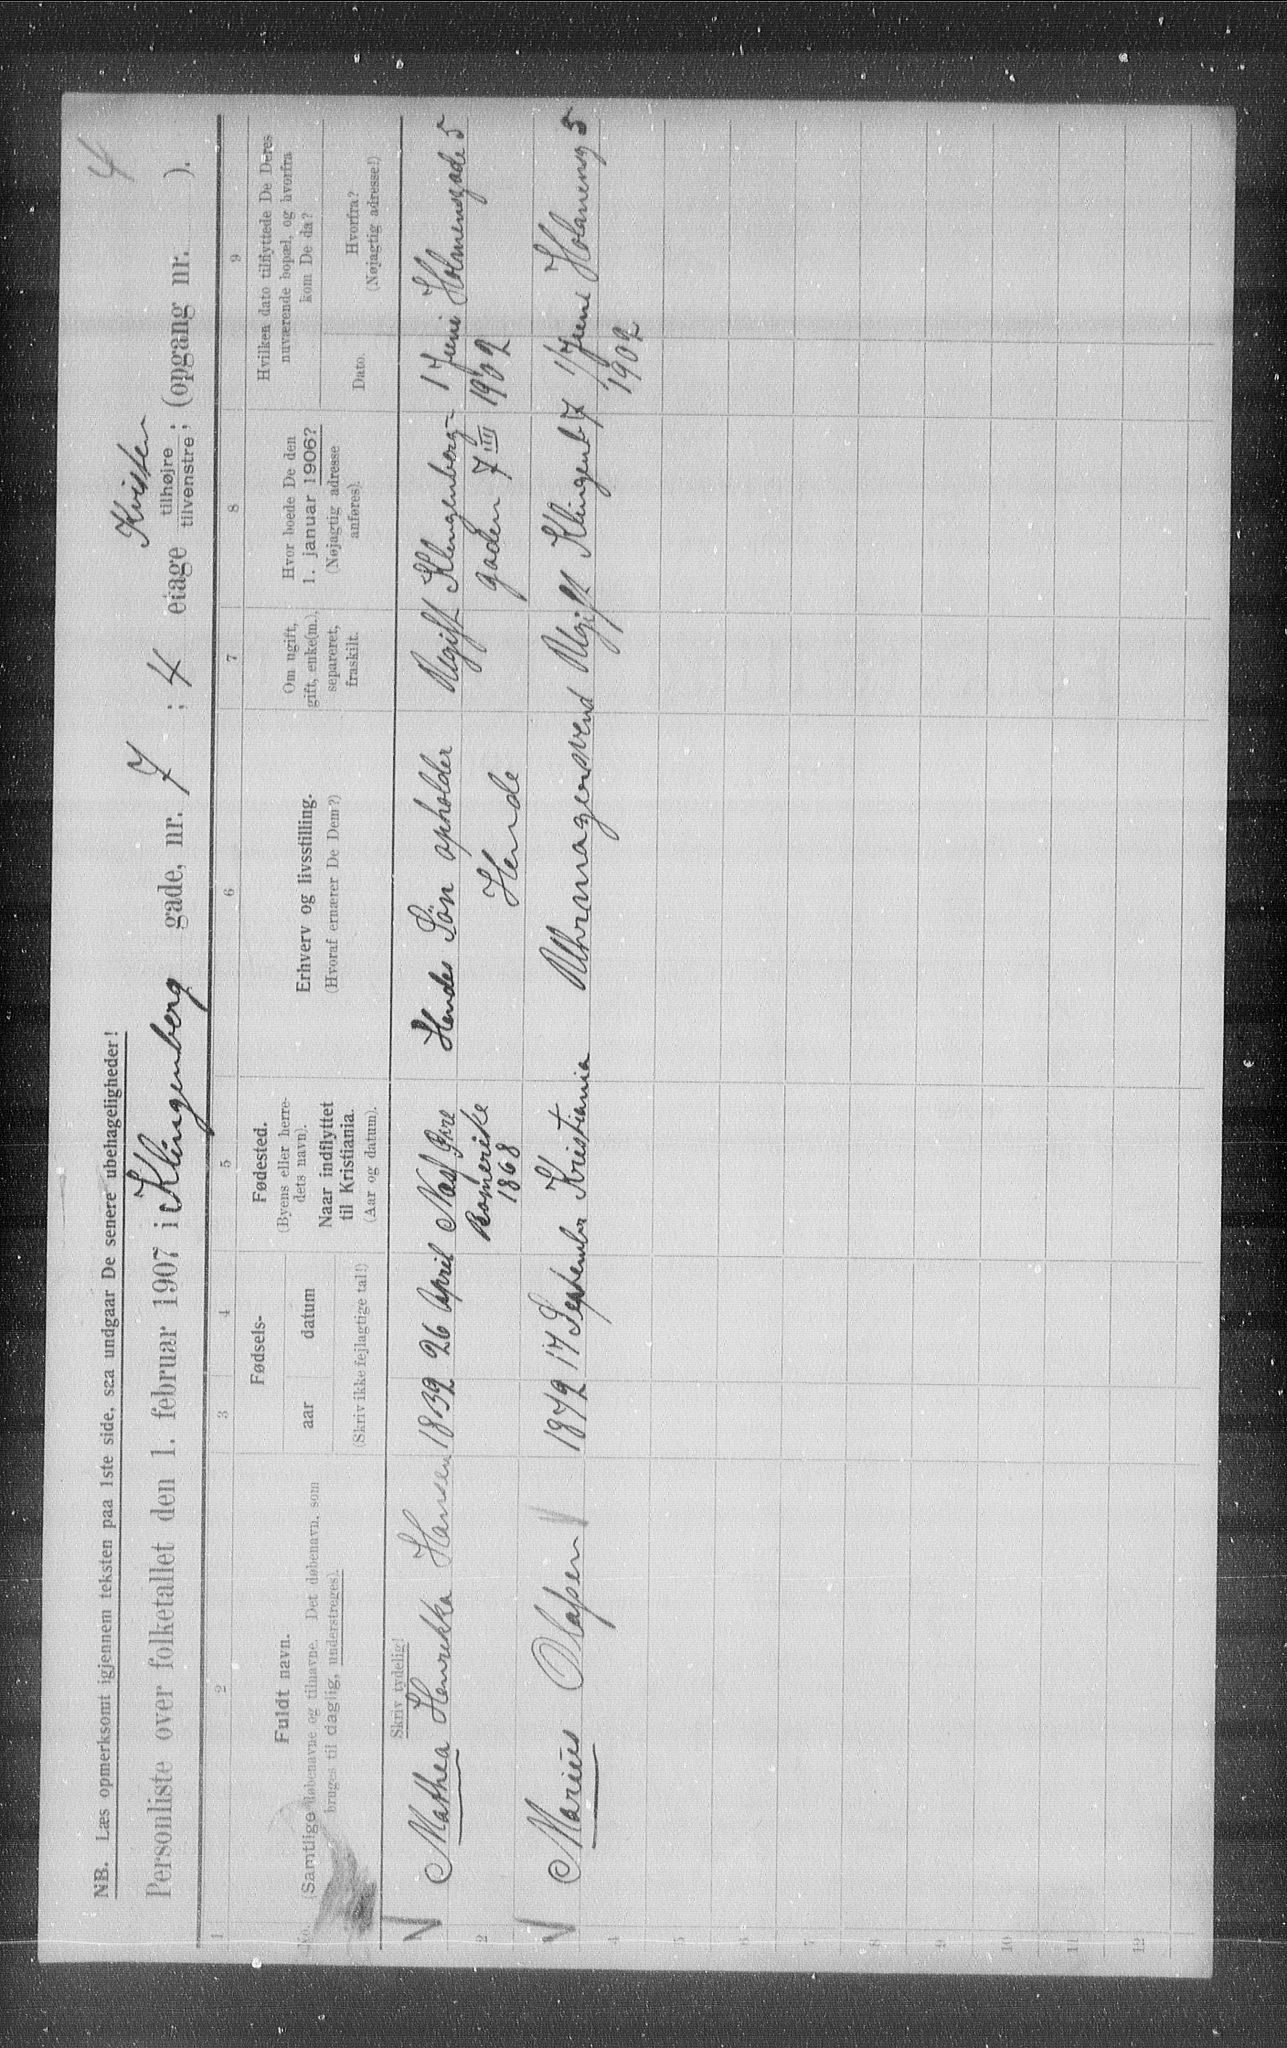 4
NB. Læs opmerksomt igjennem teksten paa 1ste side, saa undgaar De senere ubehageligheder!
Kvisten
Personliste over folketallet den 1. februar 1907 i Klingenberg gade, nr. 7 ; 4 etage tilhøjre tilvenstre ; (opgang nr. ).
1 2 3 4 5 6 7 8 9
No.
Fuldt navn.
(Samtlige døbenavne og tilnavne. Det døbenavn, som
bruges til daglig, understreges).
Fødsels-
aar datum
(Skriv ikke fejlagtige tal!)
Fødested.
(Byens eller herre-
dets navn).
Naar indflyttet
til Kristiania.
(Aar og datum).
Erhverv og livsstilling.
(Hvoraf ernærer De Dem?)
Om ugift,
gift, enke(m.),
separeret,
fraskilt.
Hvor boede De den
1. januar 1906?
(Nøjagtig adresse
anføres).
Hvilken dato tilflyttede De Deres
nuværende bopæl, og hvorfra
kom De da?
Dato.
Hvorfra?
(Nøjagtig adresse!)
Skriv tydelig!
Mathea Henrikka Hansen 1832 26 April Næs Øvre Hendes Søn opholder Ugift Klingenberg- 1 Juni Holmensgade 5
2 Romerike Hende gaden 7 III 1902
1868
Marius Olafsen 1872 17 September Kristiania Uhrmagersvend Ugift Klingenb 7 1/Juni Holmensg 5
4 1902
5
6
7
8
9
10
11
12